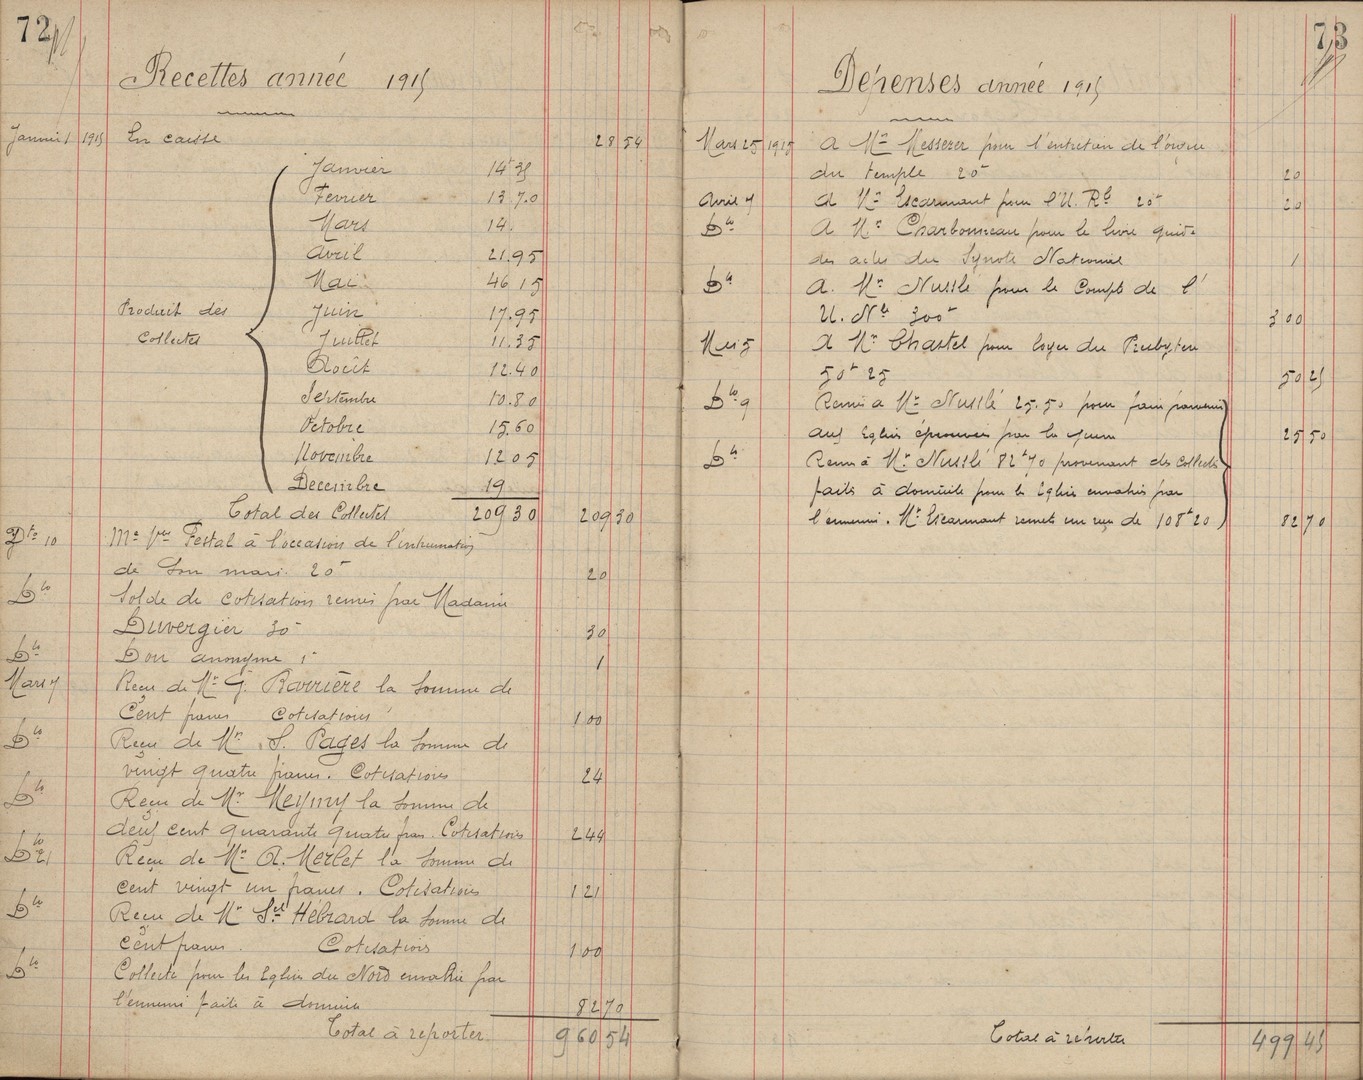 72
Recettes année 1915
Janvier 1 1915 En caisse 28 54
Janvier 14f 35
Fevrier 13.70
Mars 14.
Avril 21.95
Mai 46 15
Produit des Juin 17.95
Collectes Juillet 11.35
Août 12.40
Septembre 10.80
Octobre 15.60
Novembre 12 05
Decembre 19
Total des Collectes 209 30 209 30
Dto 10 Me Vve Festal à l'occasion de l'inhumation
de son mari. 20f 20
Dto Solde de cotisation remis par Madame
Duvergier 30f 30
Dto Don anonyme 1f 1
Mars 7 Reçu de Mr G. Barrière la somme de
Cent francs Cotisations 100
Dto Reçu de Mr S. Pages la somme de
vingt quatre francs. Cotisations 24
Dto Reçu de Mr Meymy la somme de
deux cent quarante quatre fcs. Cotisations 244
Dto 21 Reçu de Mr A. Merlet la somme de
cent vingt un francs. Cotisations 121
Dto Reçu de Mr Sel Hébrard la somme de
cent francs. Cotisations 100
Dto Collecte pour les Eglises du Nord envahie par
l'ennemi faite à domicile 82 70
Total à reporter. 960 54
73
Dépenses année 1915
Mars 25 1915 A Mr Messerer pour l'entretien de l'orgue
du temple 20f 20
Avril 7 A Mr Escarmant pour l'U. Rle 20f 20
Dto A Mr Charbonneau pour le livre guide
des actes du Synode National 1
Dto A. Mr Nusslé pour le Compte de l'
U. Nle 300f 300
Mai 5 A Mr Chastel pour loyer du Presbytère
50f 25 50 25
Dto 9 Remis a Mr Nusslé 25.50 pour faire parvenir
aux Eglises éprouvées par la guerre 25 50
Dto Remis à Mr Nusslé 82f70 provenant des collectes
faites à domicile pour les Eglises envahies par
l'ennemi. Mr Escarmant remets un reçu de 108f20 82 70
Total à reporter 499 45